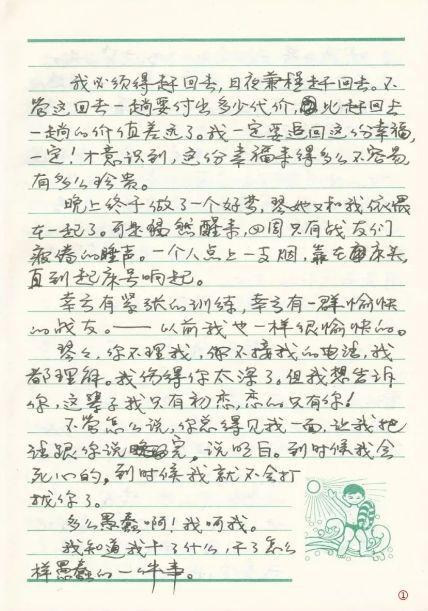 我必须得赶回去,日夜兼程赶回去。不
管这回去一趟要付出多少代价,比起回去
一趟的价值差远了。我一定要追回这份幸福,
一定!才意识到,这份幸福来得多么不容易,
有多么珍贵。
晚上终于做了一个好梦,琴她又和我依偎
在一起了。可是猛然醒来,四周只有战友们
疲倦的鼾声。一个人点上一支烟,靠在床头,
直到起床号响起。
幸亏有紧张的训练,幸亏有一群愉快
的战友。——以前我也一样很愉快的。
琴々,你不理我,你不接我的电话,我
都理解。我伤得你太深了。但我想告诉
你,这辈子我只有初恋,恋的只有你!
不管怎么说,你总得见我一面,让我把
话跟你说完,说明白。到时候我会
死心的,到时候我就不会打
扰你了。
多么愚蠢啊!我呵我。
我知道我干了什么,干了怎么
样愚蠢的一件事。
①